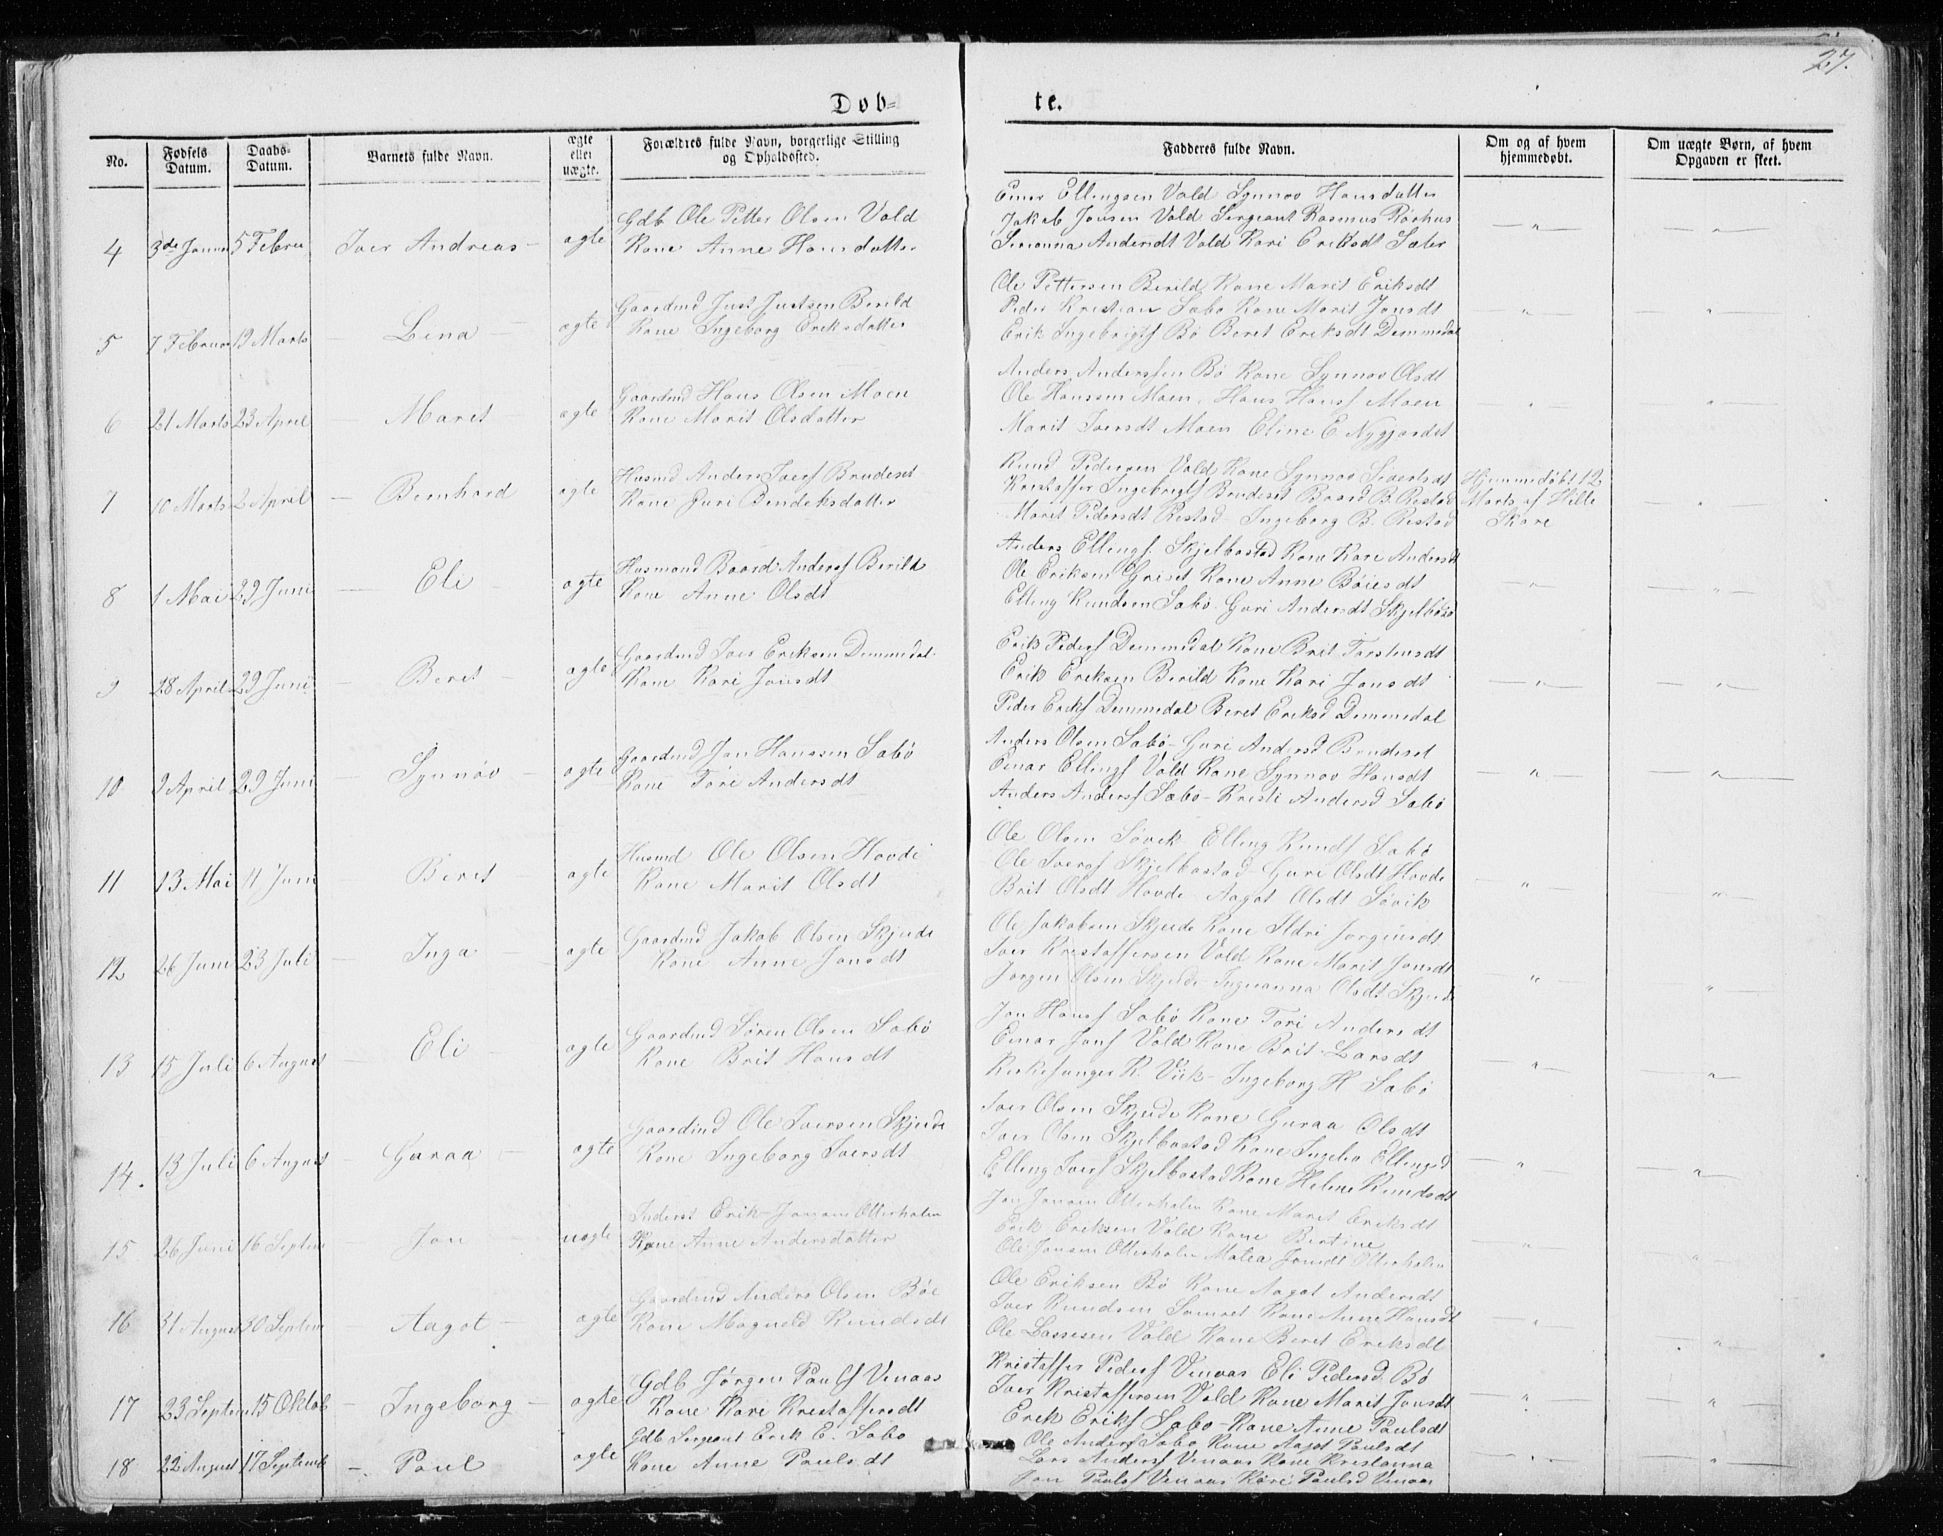 27.
Døb-
te.
No.
Fødsels Datum.
Daabs-Datum.
Barnets fulde Navn.
ægte eller uægte.
Forældres fulde Navn, borgerlige Stilling og Opholdssted.
Fadderes fulde Navn.
Om og af hvem hjemmedøbt.
Om uægte Børn, af hvem Opgaven er skeet.
4 3de Januar 5 Februar Iver Andreas - ægte
Gdb Ole Petter Olsen Vold
Kone Anne Hansdatter
Einar Ellingsen Vold Synnøv Hansdatter
Jakob Jonsen Vold Sergeant Rasmus Rørhus
Serianna Andersdt Vold Kari Eriksdt Sæter
5 7 Februar 19 Marts - Lina - ægte
Gaardmd Just Justsen Berild
Kone Ingeborg Eriksdatter
Ole Pettersen Berild Kone Marit Eriksdt
Peder Kristian Sabø Kone Marit Jonsdt
Erik Ingebrigts Bø Beret Eriksdt Demmedal
6 21 Marts 23 April - Maret - ægte
Gaardmd Hans Olsen Moen
Kone Marit Olsdatter
Anders Anderssen Bø Kone Synnøv Olsdt
Ole Hanssen Moen, Hans Hansf Moen
Marit Iversdt Moen Eline E Nygjordet
7 10 Marts 2 April - Bernhard - ægte
Husmd Anders Iversf Brudeset
Kone Guri Bendeksdatter
Knud Pedersen Vold Kone Synnøv Sivertsdt
Kristoffer Ingebrigtf Brudeset Baard B. Restad
Marit Pedersdt Restad Ingeborg B. Restad
Hjemmedøbt 12
Marts af Hille
Skare
8 1 Mai 29 Juni - Eli - ægte
Husmand Baard Andersf Berild
Kone Anne Olsdt
Anders Ellingf. Skjelbostad Kone Kare Andersdt
Ole Eriksen Griset Kone Anne Bøiesdt
Elling Knudsen Sabø Guri Andersdt Skjelbost
9 28 April 29 Juni - Beret - ægte
Gaardmd Iver Eriksen Demmedal
Kone Kari Joiesdt
Erik Pedersf Demmedal Kone Brit Torstensdt
Erik Eriksen Berild Kone Kari Jonsdt
Peder Eriksf Demmedal Beret Eriksd Demmedal
10 9 April 29 Juni - Synnøv - ægte
Gaardmd Jon Hanssen Sabø
Kone Tori Andersdt
Anders Olsen Sabø - Guri Andersd Brudeset
Einar Ellingf Vold Kone Synnøv Hansdt
Anders Andersf Sabø - Kristi Andersd Sabø
11 13 Mai 11 Juni - Beret - ægte
Husmd Ole Olsen Hovde
Kone Marit Olsdt
Ole Olsen Søvik Elling Knudf Sabø
Ole Iversf Skjelbostad - Guri Olsdt Hovde
Brit Olsdt Hovde Aagot Olsdt Søvik
12 26 Juni 23 Juli - Inga - ægte
Gaardmd Jakob Olsen Skjeide
Kone Anne Jonsdt
Ole Jakobsen Skjeide Kone Ildri Jørgensdt
Iver Kristoffersen Vold Kone Marit Jonsdt
Jørgen Olsen Skjeide - Ingeranna Olsdt Skjeide
13 15 Juli 6 August - Eli - ægte
Gaardmd Søren Olsen Sabø
Kone Brit Hansdt
Jon Hansf Sabø Kone Tori Andersdt
Einar Jonsf Vold Kone Brit Larsdt
Kirkesanger K. Viik - Ingeborg H Sabø
14. 13 Juli 6 August - Guraa - ægte
Gaardmd Ole Iversen Skjeide
Kone Ingeborg Iversdt
Iver Olsen Skjeide Kone Guraa Olsdt
Iver Olsen Skjelbostad Kone Ingebo Ellingsd
Elling Iversf Skjelbostad Kone Helene Knudsdt
15 26 Juni 16 Septem - Jon - uægte
Inderst Erik Jonsen Otterholen
Kone Anne Andersdatter
Jon Jonsen Otterholen Kone Maret Eriksdt
Erik Eriksen Vold Kone Bertine
Ole Jonsen Otterholen Malea Jonsdt Otterholen
16 31 August 30 Septem - Aagot - ægte
Gaardmd Anders Olsen Bøe
Kone Magnild Knudsdt
Ole Eriksen Bø Kone Aagot Andersdt
Iver Knudsen Samset Kone Anne Hansdt
Ole Lassesen Vold Kone Beret Eriksdt
17 23 Septem 15 Oktob - Ingeborg - ægte
Gdb Jørgen Paulsf Venaas
Kone Kari Kristoffersdt
Kristoffer Pedersf Venaas Eli Pedersd Bø
Iver Kristoffersen Vold Kone Marit Jonsdt
Erik Eriksf Sabø - Kone Anne Paulsdt
18 22 August 17 Septemb - Paul - ægte
Gdb Sergeant Erik E. Sabø
Kone Anne Paulsdt
Ole Andersf Sabø Kone Aagot Paulsdt
Lars Andersf Venaas Kone Kristianna
Jon Paulsf Venaas Kari Paulsd Venaas